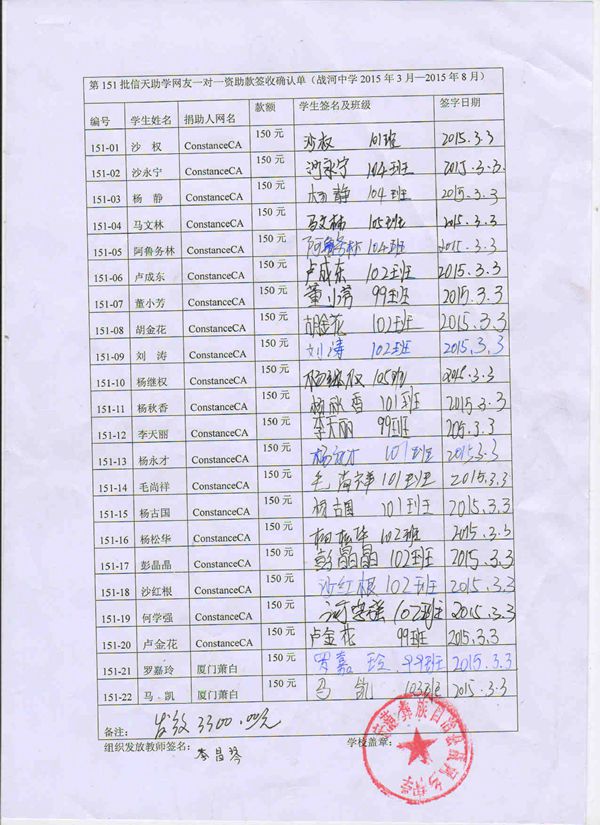 第151批信天助学网友一对一资助款签收确认单（战河中学2015年3月—2015年8月）
编号 学生姓名 捐助人网名 款额 学生签名及班级 签字日期
151-01 沙 权 ConstanceCA 150元 沙权 101班 2015.3.3
151-02 沙永宁 ConstanceCA 150元 沙永宁 104班 2015.3.3
151-03 杨 静 ConstanceCA 150元 杨静 104班 2015.3.3
151-04 马文林 ConstanceCA 150元 马文林 105班 2015.3.3
151-05 阿鲁务林 ConstanceCA 150元 阿鲁务林 104班 2015.3.3
151-06 卢成东 ConstanceCA 150元 卢成东 102班 2015.3.3
151-07 董小芳 ConstanceCA 150元 董小芳 99班 2015.3.3
151-08 胡金花 ConstanceCA 150元 胡金花 102班 2015.3.3
151-09 刘 涛 ConstanceCA 150元 刘涛 102班 2015.3.3
151-10 杨继权 ConstanceCA 150元 杨继权 105班 2015.3.3
151-11 杨秋香 ConstanceCA 150元 杨秋香 101班 2015.3.3
151-12 李天丽 ConstanceCA 150元 李天丽 99班 205.3.3
151-13 杨永才 ConstanceCA 150元 杨永才 101班 2015.3.3
151-14 毛尚祥 ConstanceCA 150元 毛尚祥 101班 2015.3.3
151-15 杨古国 ConstanceCA 150元 杨古国 101班 2015.3.3
151-16 杨松华 ConstanceCA 150元 杨松华 102班 2015.3.3
151-17 彭晶晶 ConstanceCA 150元 彭晶晶 102班 2015.3.3
151-18 沙红根 ConstanceCA 150元 沙红根 102班 2015.3.3
151-19 何学强 ConstanceCA 150元 何学强 102班 2015.3.3
151-20 卢金花 ConstanceCA 150元 卢金花 99班 2015.3.3
151-21 罗嘉玲 厦门萧白 150元 罗嘉玲 99班 2015.3.3
151-22 马 凯 厦门萧白 150元 马凯 103班 2015.3.3
备注： 发放3300.00元
组织发放教师签名： 李昌琴 学校盖章：
彝族自治县战河乡中学